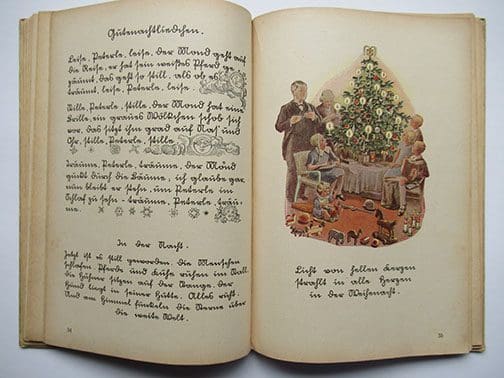 Gutenachtliedchen.
Leise, Peterle, leise, der Mond geht auf
die Reise, er hat sein weißes Pferd ge-
zäumt, das geht so still, als ob es
träumt, leise, Peterle, leise.
Stille, Peterle, stille, der Mond hat eine
Brille, ein graues Wölkchen schob sich
vor, das sitzt ihm grad auf Nas' und
Ohr, stille, Peterle, stille
Träume, Peterle, träume, der Mond
guckt durch die Bäume, ich glaube gar
nun bleibt er stehn, um Peterle im
Schlaf zu sehn - träume, Peterle, träu-
me.
In der Nacht.
Jetzt ist es still geworden. Die Menschen
schlafen. Pferde und Kühe ruhen im Stall.
Die Hühner sitzen auf der Stange. Der
Hund liegt in seiner Hütte. Alles ruht.
Und am Himmel funkeln die Sterne über
die weite Welt.
34
Licht von hellen Kerzen
strahlt in alle Herzen
in der Weihenacht.
35